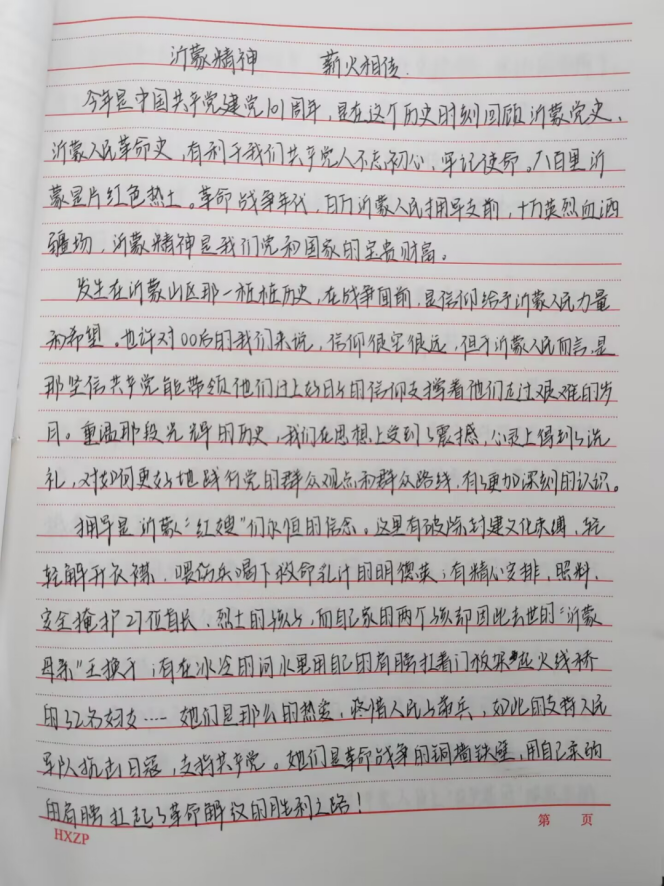 沂蒙精神 薪火相传.
今年是中国共产党建党101周年,是在这个历史时刻回顾沂蒙党史、
沂蒙人民革命史,有利于我们共产党人不忘初心,牢记使命。八百里沂
蒙是片红色热土。革命战争年代,百万沂蒙人民拥导支前,十万英烈血洒
疆场,沂蒙精神是我们党和国家的宝贵财富。
发生在沂蒙山区那一桩桩历史,在战争面前,是信仰给予沂蒙人民力量
和希望。也许对00后的我们来说,信仰很空很远,但于沂蒙人民而言,是
那坚信共产党能带领他们过上好日子的信仰支撑着他们走过艰难的岁
月。重温那段光辉的历史,我们在思想上受到了震撼,心灵上得到了洗
礼,对如何更好地践行党的群众观点和群众路线,有了更加深刻的认识。
拥导是沂蒙“红嫂”们永恒的信念。这里有破除封建文化束缚,轻
轻解开衣襟,喂伤兵喝下救命乳汁的明德英;有精心安排,照料、
安全掩护27位首长、烈士的孩子,而自己家的两个孩却因此去世的“沂蒙
母亲”王换于;有在冰冷的河水里用自己的肩膀扛着门板架起火线桥
的32名妇女……她们是那么的热爱,疼惜人民子弟兵,如此的支持人民
军队抗击日寇,支持共产党。她们是革命战争的铜墙铁壁,用自己柔弱
的肩膀扛起了革命解放的胜利之路!
HXZP 第 页